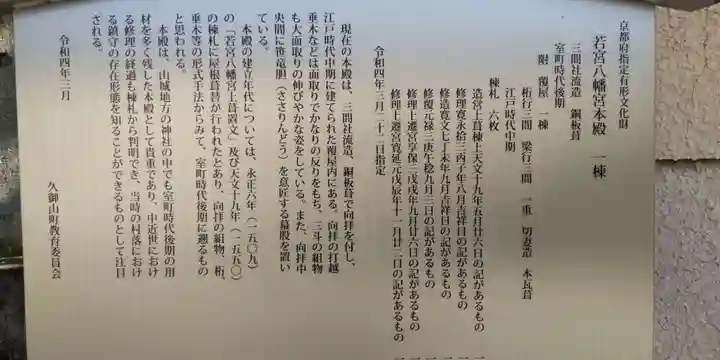 京都府指定有形文化財
若宮八幡宮本殿 一棟
三間社流造 銅板葺
室町時代後期
附 覆屋 一棟
桁行三間 梁行三間 一重 切妻造 本瓦葺
江戸時代中期
棟札 六枚
造営上葺棟上天文十九年五月廿六日の記があるもの 一
修理寛永拾三丙子年八月吉祥日の記があるもの 一
修造寛文七丁未年九月吉祥日の記があるもの 一
修覆元禄三庚午稔九月三日の記があるもの 一
修理上遷宮享保三戌戌年九月廿六日の記があるもの 一
修理上遷宮寛延元戊辰年十一月廿二日の記があるもの 一
令和四年三月二十二日指定
現在の本殿は、三間社流造、銅板葺で向拝を付し、
江戸時代中期に建てられた覆屋内にある。向拝の打越
垂木などは面取りでかなりの反りをもち、三斗の組物
も大面取りの伸びやかな姿をしている。また、向拝中
央間に笹竜胆（ささりんどう）を意匠する蟇股を置い
ている。
本殿の建立年代については、永正六年（一五〇九）
の「若宮八幡宮上葺置文」及び天文十九年（一五五〇）
の棟札に屋根葺替が行われたとあり、向拝の組物、桁、
垂木等の形式手法からみて、室町時代後期に遡るもの
と思われる。
本殿は、山城地方の神社の中でも室町時代後期の用
材を多く残した本殿として貴重であり、中近世におけ
る修理の経過も棟札から判明でき、当時の村落におけ
る鎮守の存在形態を知ることができるものとして注目
される。
令和四年三月
久御山町教育委員会